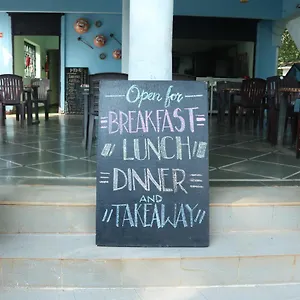 Open for
BREAKFAST
LUNCH
DINNER
AND
TAKEAWAY